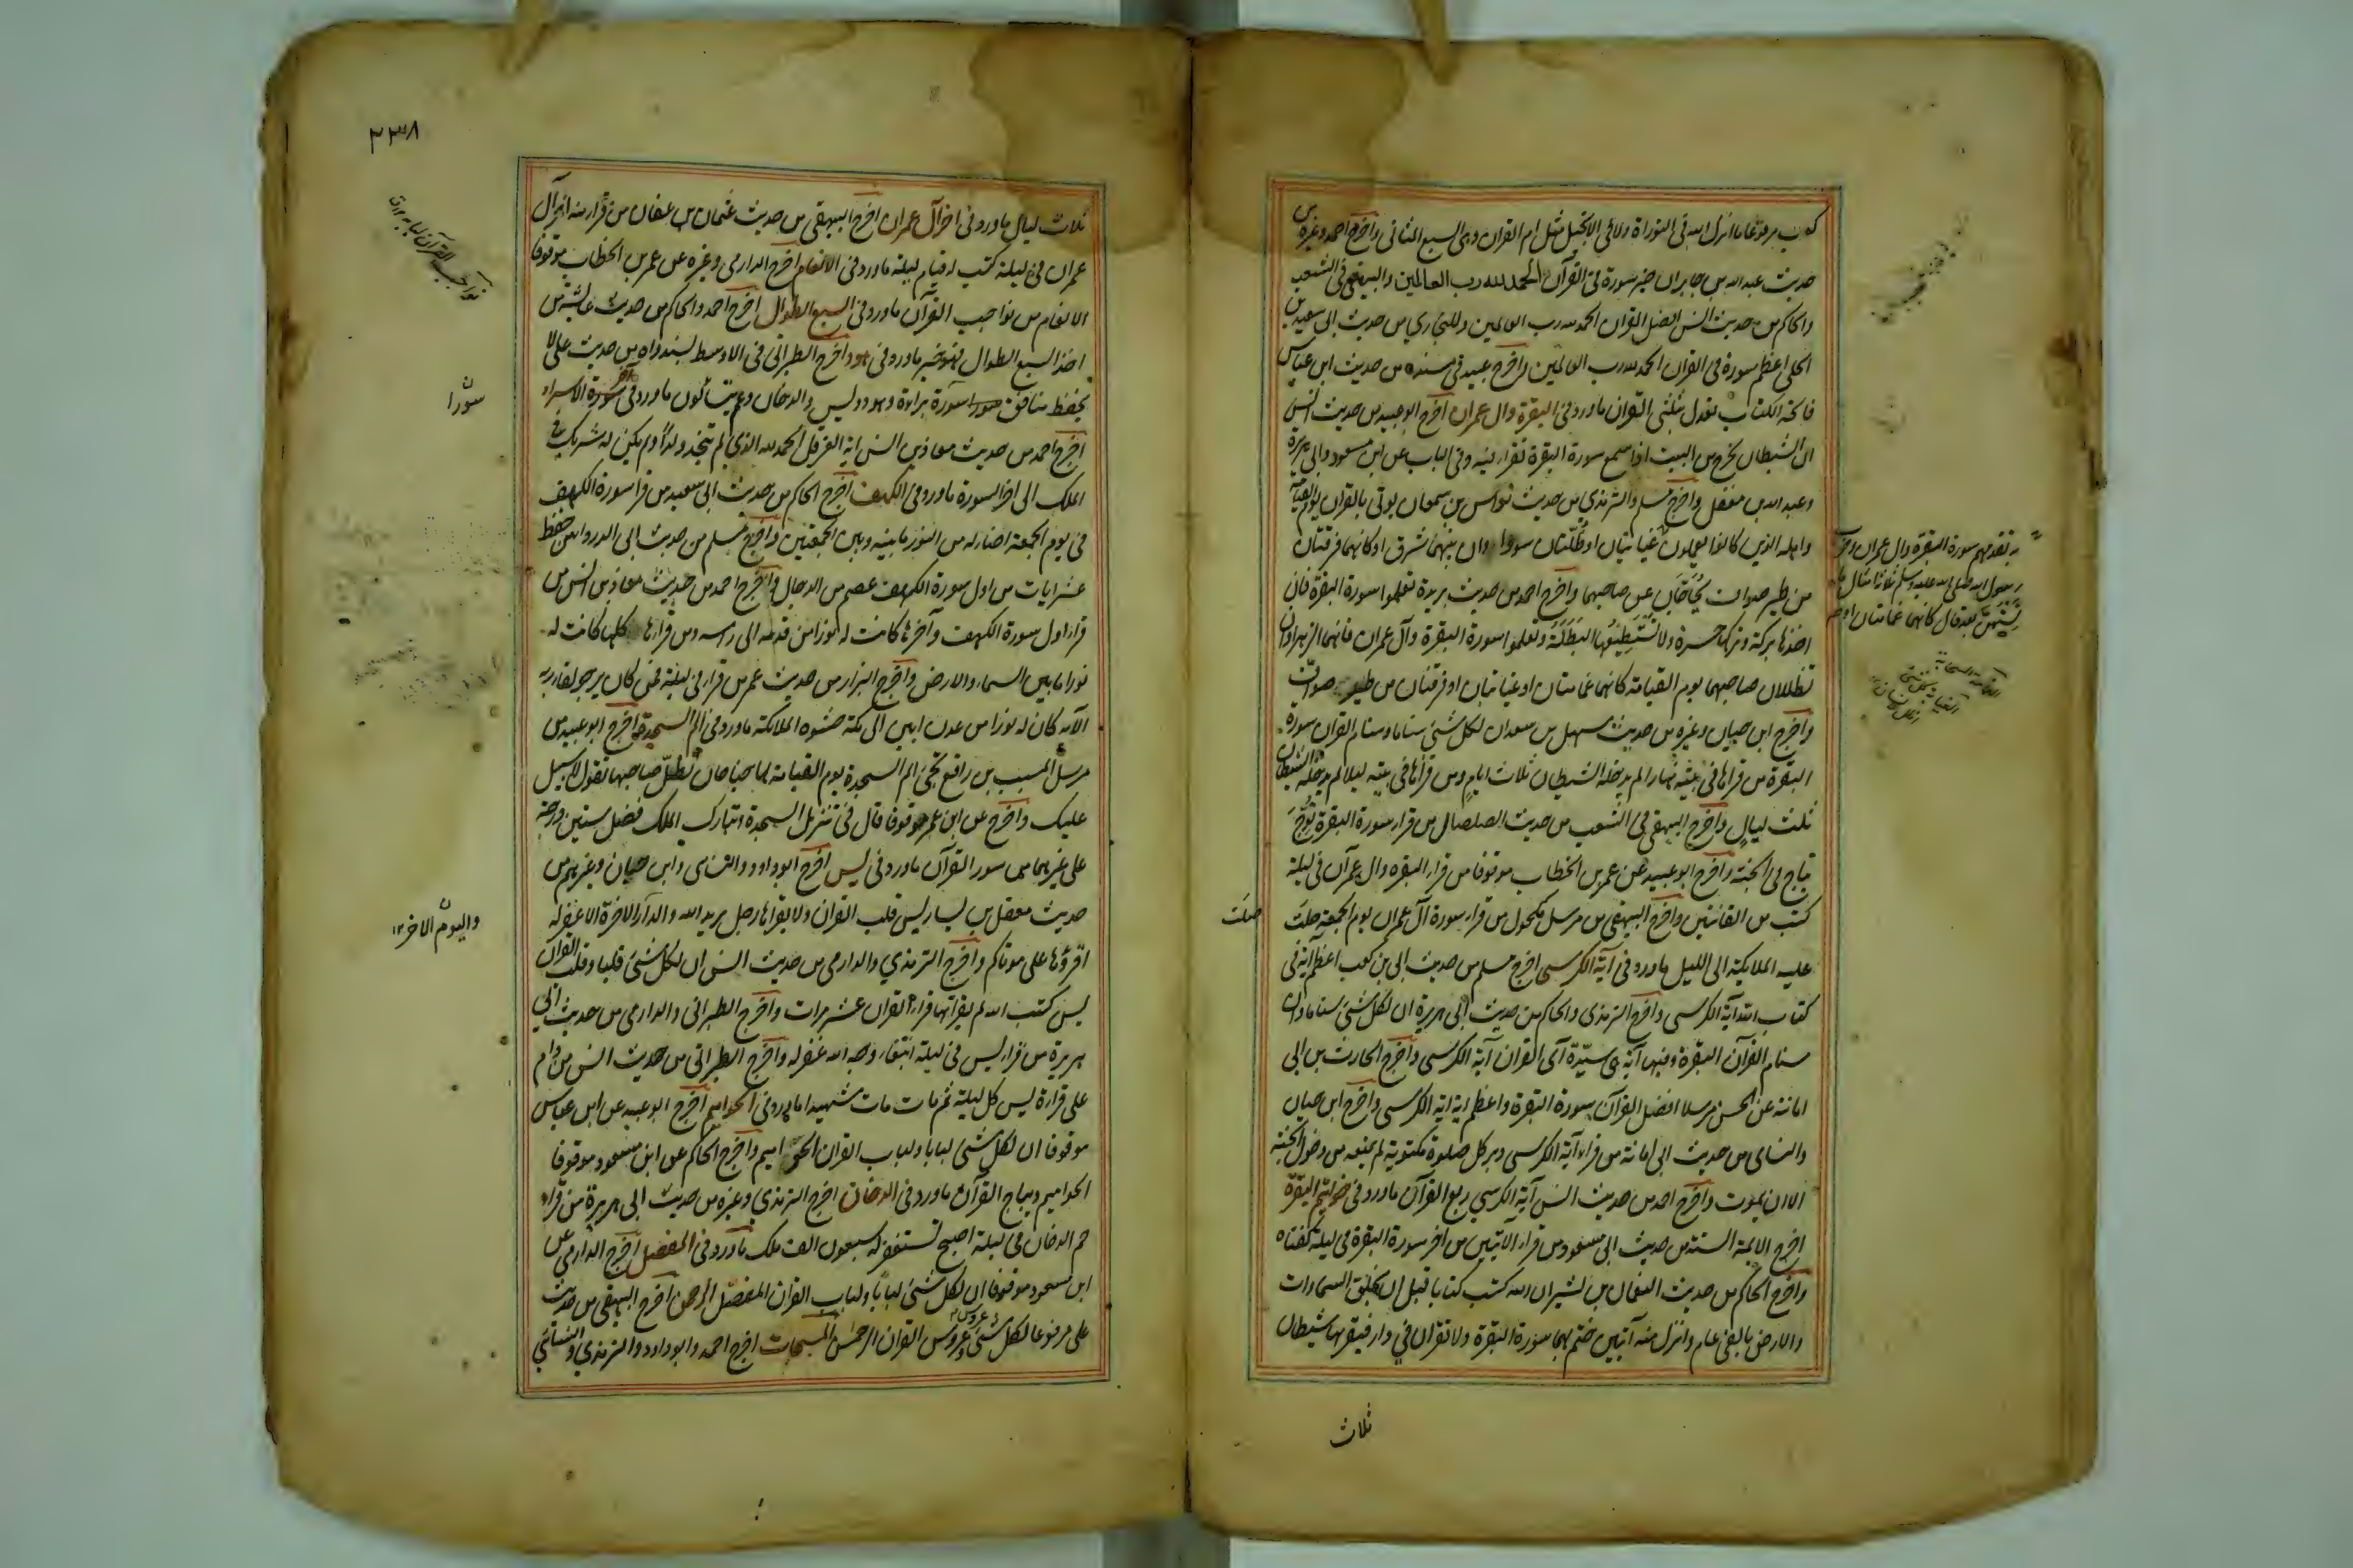 كعب مرفوعا ما انزل الله فى التوراة ولا فى الانجيل مثل ام القران وهى السبع المثانى واخرج احمد وغيره من
حديث عبد الله بن جابر ان خير سورة فى القرآن الحمد لله رب العالمين والبيهقى فى الشعب
والحاكم من حديث انس افضل القران الحمد لله رب العالمين وللبخاري من حديث ابى سعيد بن
المعلى اعظم سورة فى القران الحمد لله رب العالمين واخرج عبيد فى مسنده من حديث ابن عباس
فاتحة الكتاب تعدل بثلثى القران ما ورد فى البقرة وال عمران اخرج ابو عبيد من حديث انس
ان الشيطان يخرج من البيت اذا سمع سورة البقرة تقرا فيه وفى الباب عن ابن مسعود وابى هريرة
وعبد الله بن مغفل واخرج مسلم والترمذي من حديث نواس بن سمعان يوتى بالقران يوم القيمة
واهله الذين كانوا يعملون غيايتان او ظلتان سوداوان بينهما شرق او كانهما فرقتان
من طير صواف يحاجان عن صاحبهما واخرج احمد من حديث بريدة تعلموا سورة البقرة فان
اخذها بركة وتركها حسرة ولا تستطيعها البطلة وتعلموا سورة البقرة وآل عمران فانهما الزهراوان
تظلان صاحبهما يوم القيامة كانهما غمامتان او غيايتان او فرقتان من طير صواف
واخرج ابن حبان وغيره من حديث سهل بن سعد ان لكل شئ سناما وسنام القران سورة
البقرة من قراها فى بيته نهارا لم يدخله الشيطان ثلاث ايام ومن قراها فى بيته ليلا لم يدخله الشيطان
ثلث ليال واخرج البيهقى فى الشعب من حديث الصلصال من قراء سورة البقرة توج
بتاج فى الجنة واخرج ابو عبيد عن عمر بن الخطاب موقوفا من قراء البقره وال عمران فى ليلة
كتب من القانتين واخرج البيهقى من مرسل مكحول من قراء سورة آل عمران يوم الجمعة صلت
صلت
عليه الملائكة الى الليل ما ورد فى آية الكرسى اخرج مسلم من حديث ابى بن كعب اعظم آية فى
كتاب الله آية الكرسى واخرج الترمذى والحاكم من حديث ابى هريرة ان لكل شئ سناما وان
سنام القرآن البقرة وفيها آية هى سيّدة آى القران آية الكرسى واخرج الحارث بن ابى
امامة عن الحسن مرسلا افضل القرآن سورة البقرة واعظم اية اية الكرسى واخرج ابن حبان
والنساى من حديث ابى امامة من قراء آية الكرسى دبر كل صلوة مكتوبة لم يمنعه من دخول الجنة
الا ان يموت واخرج احمد من حديث انس آية الكرسي ربع القرآن ما ورد فى خواتيم البقرة
اخرج الايمة الستة من حديث ابى مسعود من قراء الآيتين من اخر سورة البقرة فى ليلة كفتاه
واخرج الحاكم من حديث النعمان بن بشير ان الله كتب كتابا قبل ان يخلق السماوات
والارض بالفى عام وانزل منه آيتين ختم بهما سورة البقرة ولا تقران في دار فيقربها شيطان
ثلاث
به تقدمهم سورة البقرة وال عمران وضرب
رسول الله صلى الله عليه وسلم ثلاثة امثال ما
نسيتهن بعد قال كانهما غمامتان او
٢٣٨
ثلاث ليال ما ورد فى اخر آل عمران اخرج البيهقى من حديث عثمان بن عفان من قراء اخر آل
عمران فى ليلة كتب له قيام ليلة ما ورد فى الانعام اخرج الدارمى وغيره عن عمر بن الخطاب موقوفا
الانعام من نواجب القرآن ما ورد فى السبع الطوال اخرج احمد والحاكم من حديث عايشة من
اخذ السبع الطوال فهو خير ما ورد فى هود اخرج الطبرانى فى الاوسط بسند واه من حديث على لا
يحفظ منافق سورة براءة وهود ويس والدخان وعم يتسائلون ما ورد فى آخر سورة الاسراء
سورا
اخرج احمد من حديث معاذ بن انس اية العز قل الحمد لله الذي لم يتخذ ولدا ولم يكن له شريك فى
الملك الى اخر السورة ما ورد فى الكهف اخرج الحاكم من حديث ابى سعيد من قرا سورة الكهف
فى يوم الجمعة اضاء له من النور ما بينه وبين الجمعتين واخرج مسلم من حديث ابى الدرداء من حفظ
عشر ايات من اول سورة الكهف عصم من الدجال واخرج احمد من حديث معاذ بن انس من
قراء اول سورة الكهف وآخرها كانت له نورا من قدمه الى راسه ومن قراءها كلها كانت له
نورا ما بين السماء والارض واخرج البزار من حديث عمر من قراء فى ليلة فمن كان يرجو لقاء ربه
الآية كان له نورا من عدن ابين الى مكة حشوه الملائكة ما ورد فى الم السجدة اخرج ابو عبيد من
مرسل المسيب بن رافع تجئ الم السجدة يوم القيامة لها جناحان تظل صاحبها تقول لا سبيل
عليك واخرج عن ابن عمر موقوفا قال فى تنزيل السجدة وتبارك الملك فضل ستين درجة
على غيرهما من سور القرآن ما ورد فى يس اخرج ابو داود والنساى وابن حبان وغيرهم من
حديث معقل بن يسار يس قلب القران ولا يقراها رجل يريد الله والدار الاخرة الا غفر له
واليوم الاخر ١٢
اقرؤها على موتاكم واخرج الترمذي والدارمى من حديث انس ان لكل شئ قلبا وقلب القرآن
يس كتب الله له بقراتها قراءة القران عشر مرات واخرج الطبرانى والدارمى من حديث ابي
هريرة من قراء يس فى ليلة ابتغاء وجه الله غفر له واخرج الطبرانى من حديث انس من دام
على قراءة يس كل ليلة ثم مات مات شهيدا ما ورد فى الحواميم اخرج ابو عبيد عن ابن عباس
موقوفا ان لكل شئ لبابا ولباب القران الحواميم واخرج الحاكم عن ابن مسعود موقوفا
الحواميم ديباج القرآن ما ورد فى الدخان اخرج الترمذي وغيره من حديث ابى هريرة من قراء
حم الدخان فى ليلة اصبح تستغفر له سبعون الف ملك ما ورد فى المفصل اخرج الدارمي عن
ابن مسعود موقوفا ان لكل شئ لبابا ولباب القران المفصل الرحمن اخرج البيهقى من حديث
على مرفوعا لكل شئ عروس وعروس القران الرحمن المسبحات اخرج احمد وابو داود والترمذي والنسائي